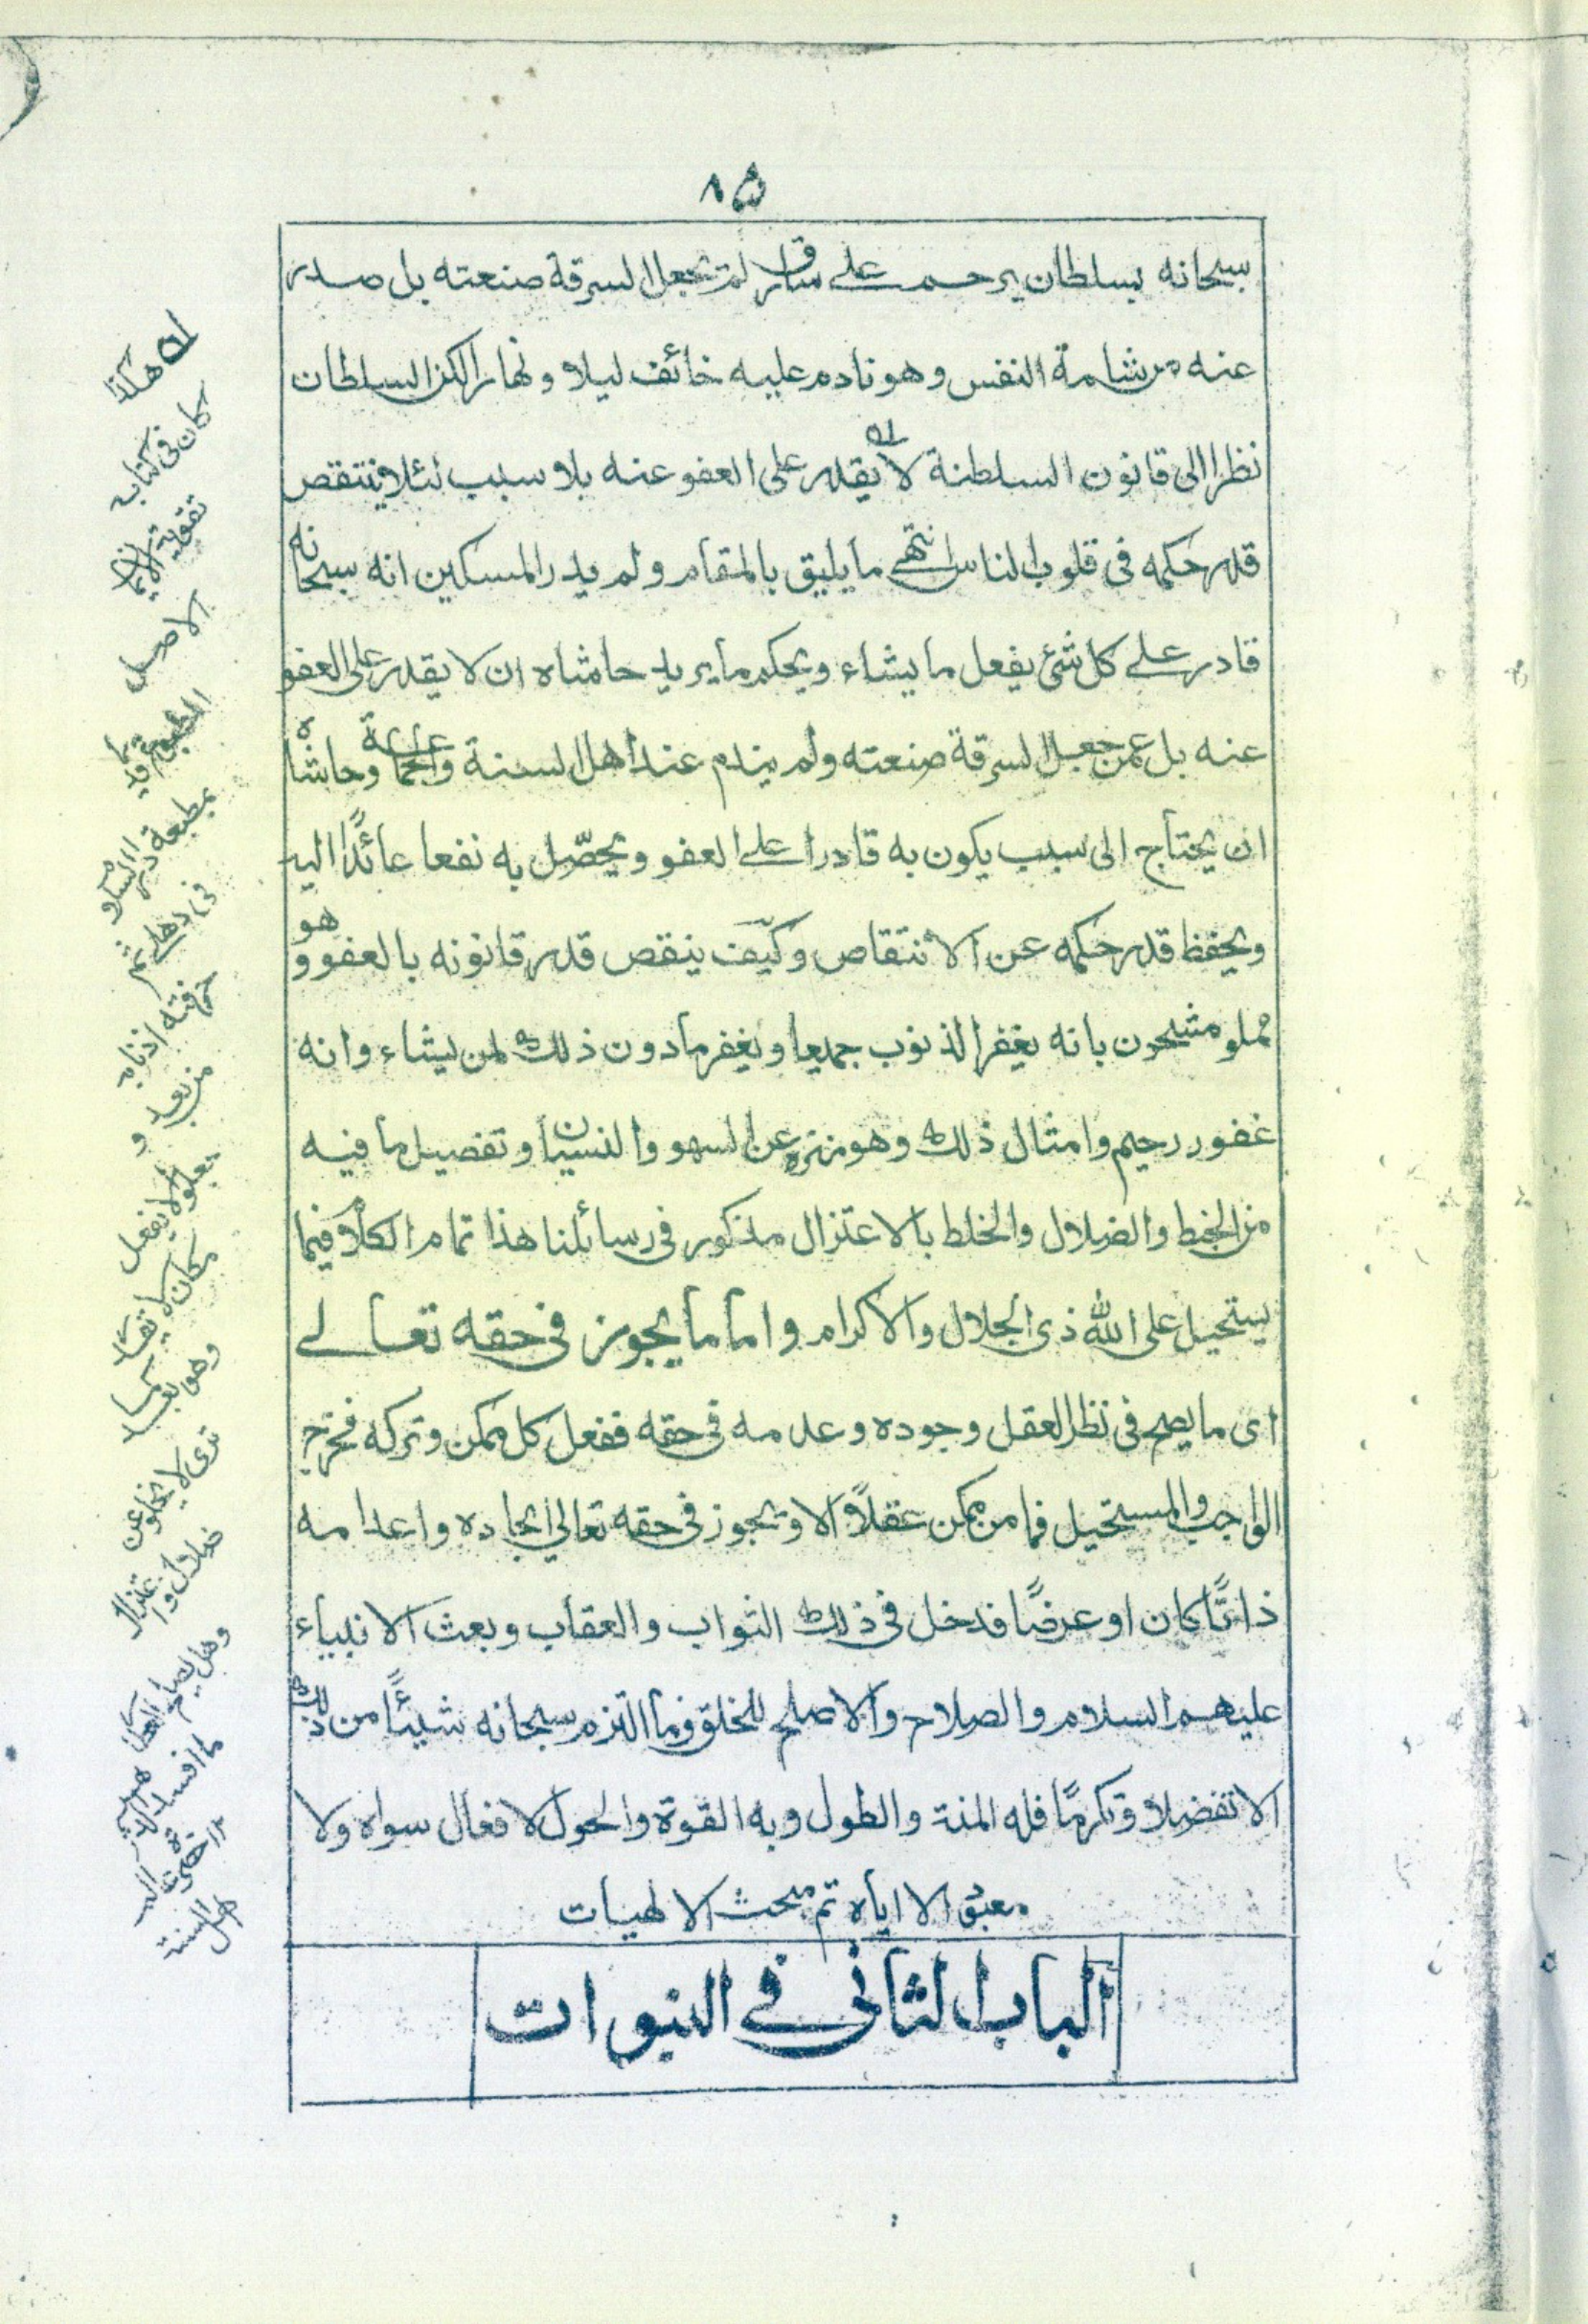 ٨۵
سبحانه بسلطان يرحم على سارق لم يجعل السرقة صنعته بل صدر
عنه من شامة النفس وهو نادم عليه خائف ليلا ونهارا لكن السلطان
نظرا الى قانون السلطنة لا يقدر على العفو عنه بلا سبب لئلا ينتقص
قدر حكمه فى قلوب الناس انتهى ما يليق بالمقام ولم يدر المسكين انه سبحانه
قادر على كل شئ يفعل ما يشاء ويحكم ما يريد حاشاه ان لا يقدر على العفو
عنه بل عمن جعل السرقة صنعته ولم يندم عند اهل السنة والجماعة وحاشاه
ان يحتاج الى سبب يكون به قادرا على العفو ويحصّل به نفعا عائدًا اليه
ويحفظ قدر حكمه عن الانتقاص وكيف ينقص قدر قانونه بالعفو وهو
مملو مشحون بانه يغفر الذنوب جميعا ويغفر ما دون ذلك لمن يشاء وانه
غفور رحيم وامثال ذلك وهو منزه عن السهو والنسيان وتفصيل ما فيه
من الخبط والضلال والخلط بالاعتزال مذكور فى رسائلنا هذا تمام الكلام فيما
يستحيل على الله ذى الجلال والاكرام واما ما يجوز فى حقه تعالى
اى ما يصح فى نظر العقل وجوده وعدمه فى حقه ففعل كل ممكن وتركه فخرج
الواجب والمستحيل فما من ممكن عقلًا الا ويجوز فى حقه تعالى ايجاده واعدامه
ذاتًا كان او عرضًا فدخل فى ذلك الثواب والعقاب وبعث الانبياء
عليهم السلام والصلاح والاصلح للخلق وما التزم سبحانه شيئًا من ذلك
الا تفضلا وتكرمًا فله المنة والطول وبه القوة والحول لا فعال سواه ولا
معبود الا اياه تم مبحث الالهيات
الباب الثانى فى النبوات
له هكذا
كان فى كتابه
تقوية الايمان
الاصل
المطبوع قديما
بمطبعة دار السلام
فى دهلى ثم
حرفته اذنابه
من بعد و
جعلوا لا يفعل
مكان لا يقدر
وهو ايضا كما
ترى لا يخلو عن
ضلال واعتزال
وهل يصلح العطار
ما افسد الدهر
اهل السنة